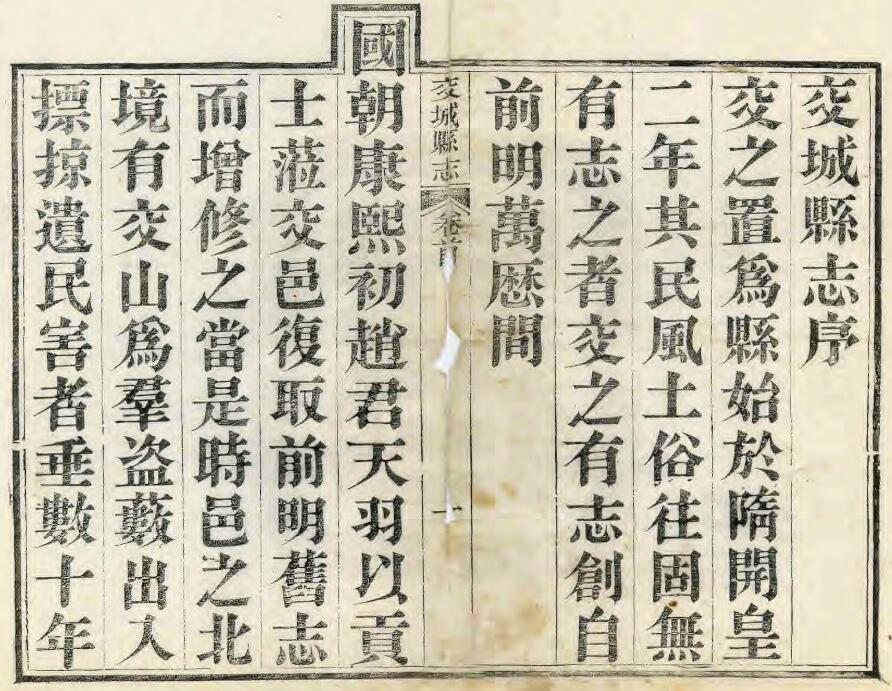 交城縣志序
交之置爲縣始於隋開皇
二年其民風土俗往固無
有志之者交之有志創自
前明萬歷間
交城縣志 卷首 一
國朝康熙初趙君天羽以貢
士蒞交邑復取前明舊志
而增修之當是時邑之北
境有交山爲羣盗藪出入
摽掠遺民害者垂數十年